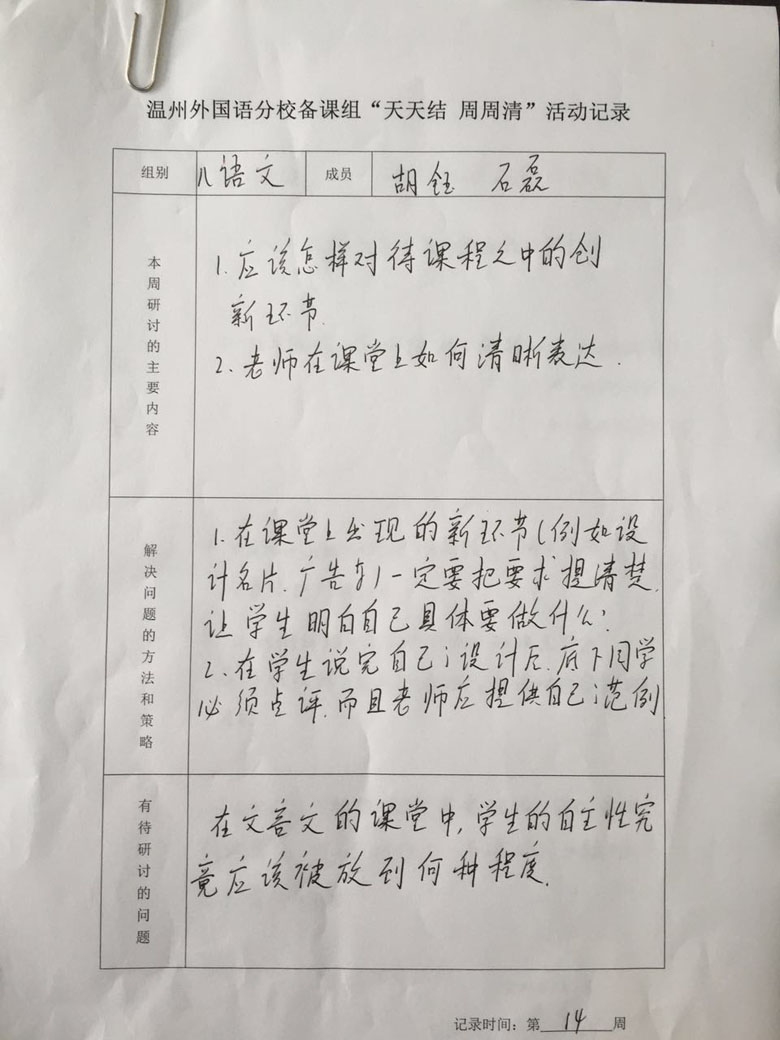 温州外国语分校备课组“天天结 周周清”活动记录
组别 八语文 成员 胡钰 石磊
本周研讨的主要内容
1. 应该怎样对待课程之中的创
新环节.
2. 老师在课堂上如何清晰表达.
解决问题的方法和策略
1. 在课堂上出现的新环节(例如设
计名片.广告等)一定要把要求提清楚.
让学生明白自己具体要做什么?
2. 在学生说完自己设计后.底下同学
必须点评.而且老师应提供自己范例
有待研讨的问题
在文言文的课堂中,学生的自主性究
竟应该被放到何种程度.
记录时间:第 14 周